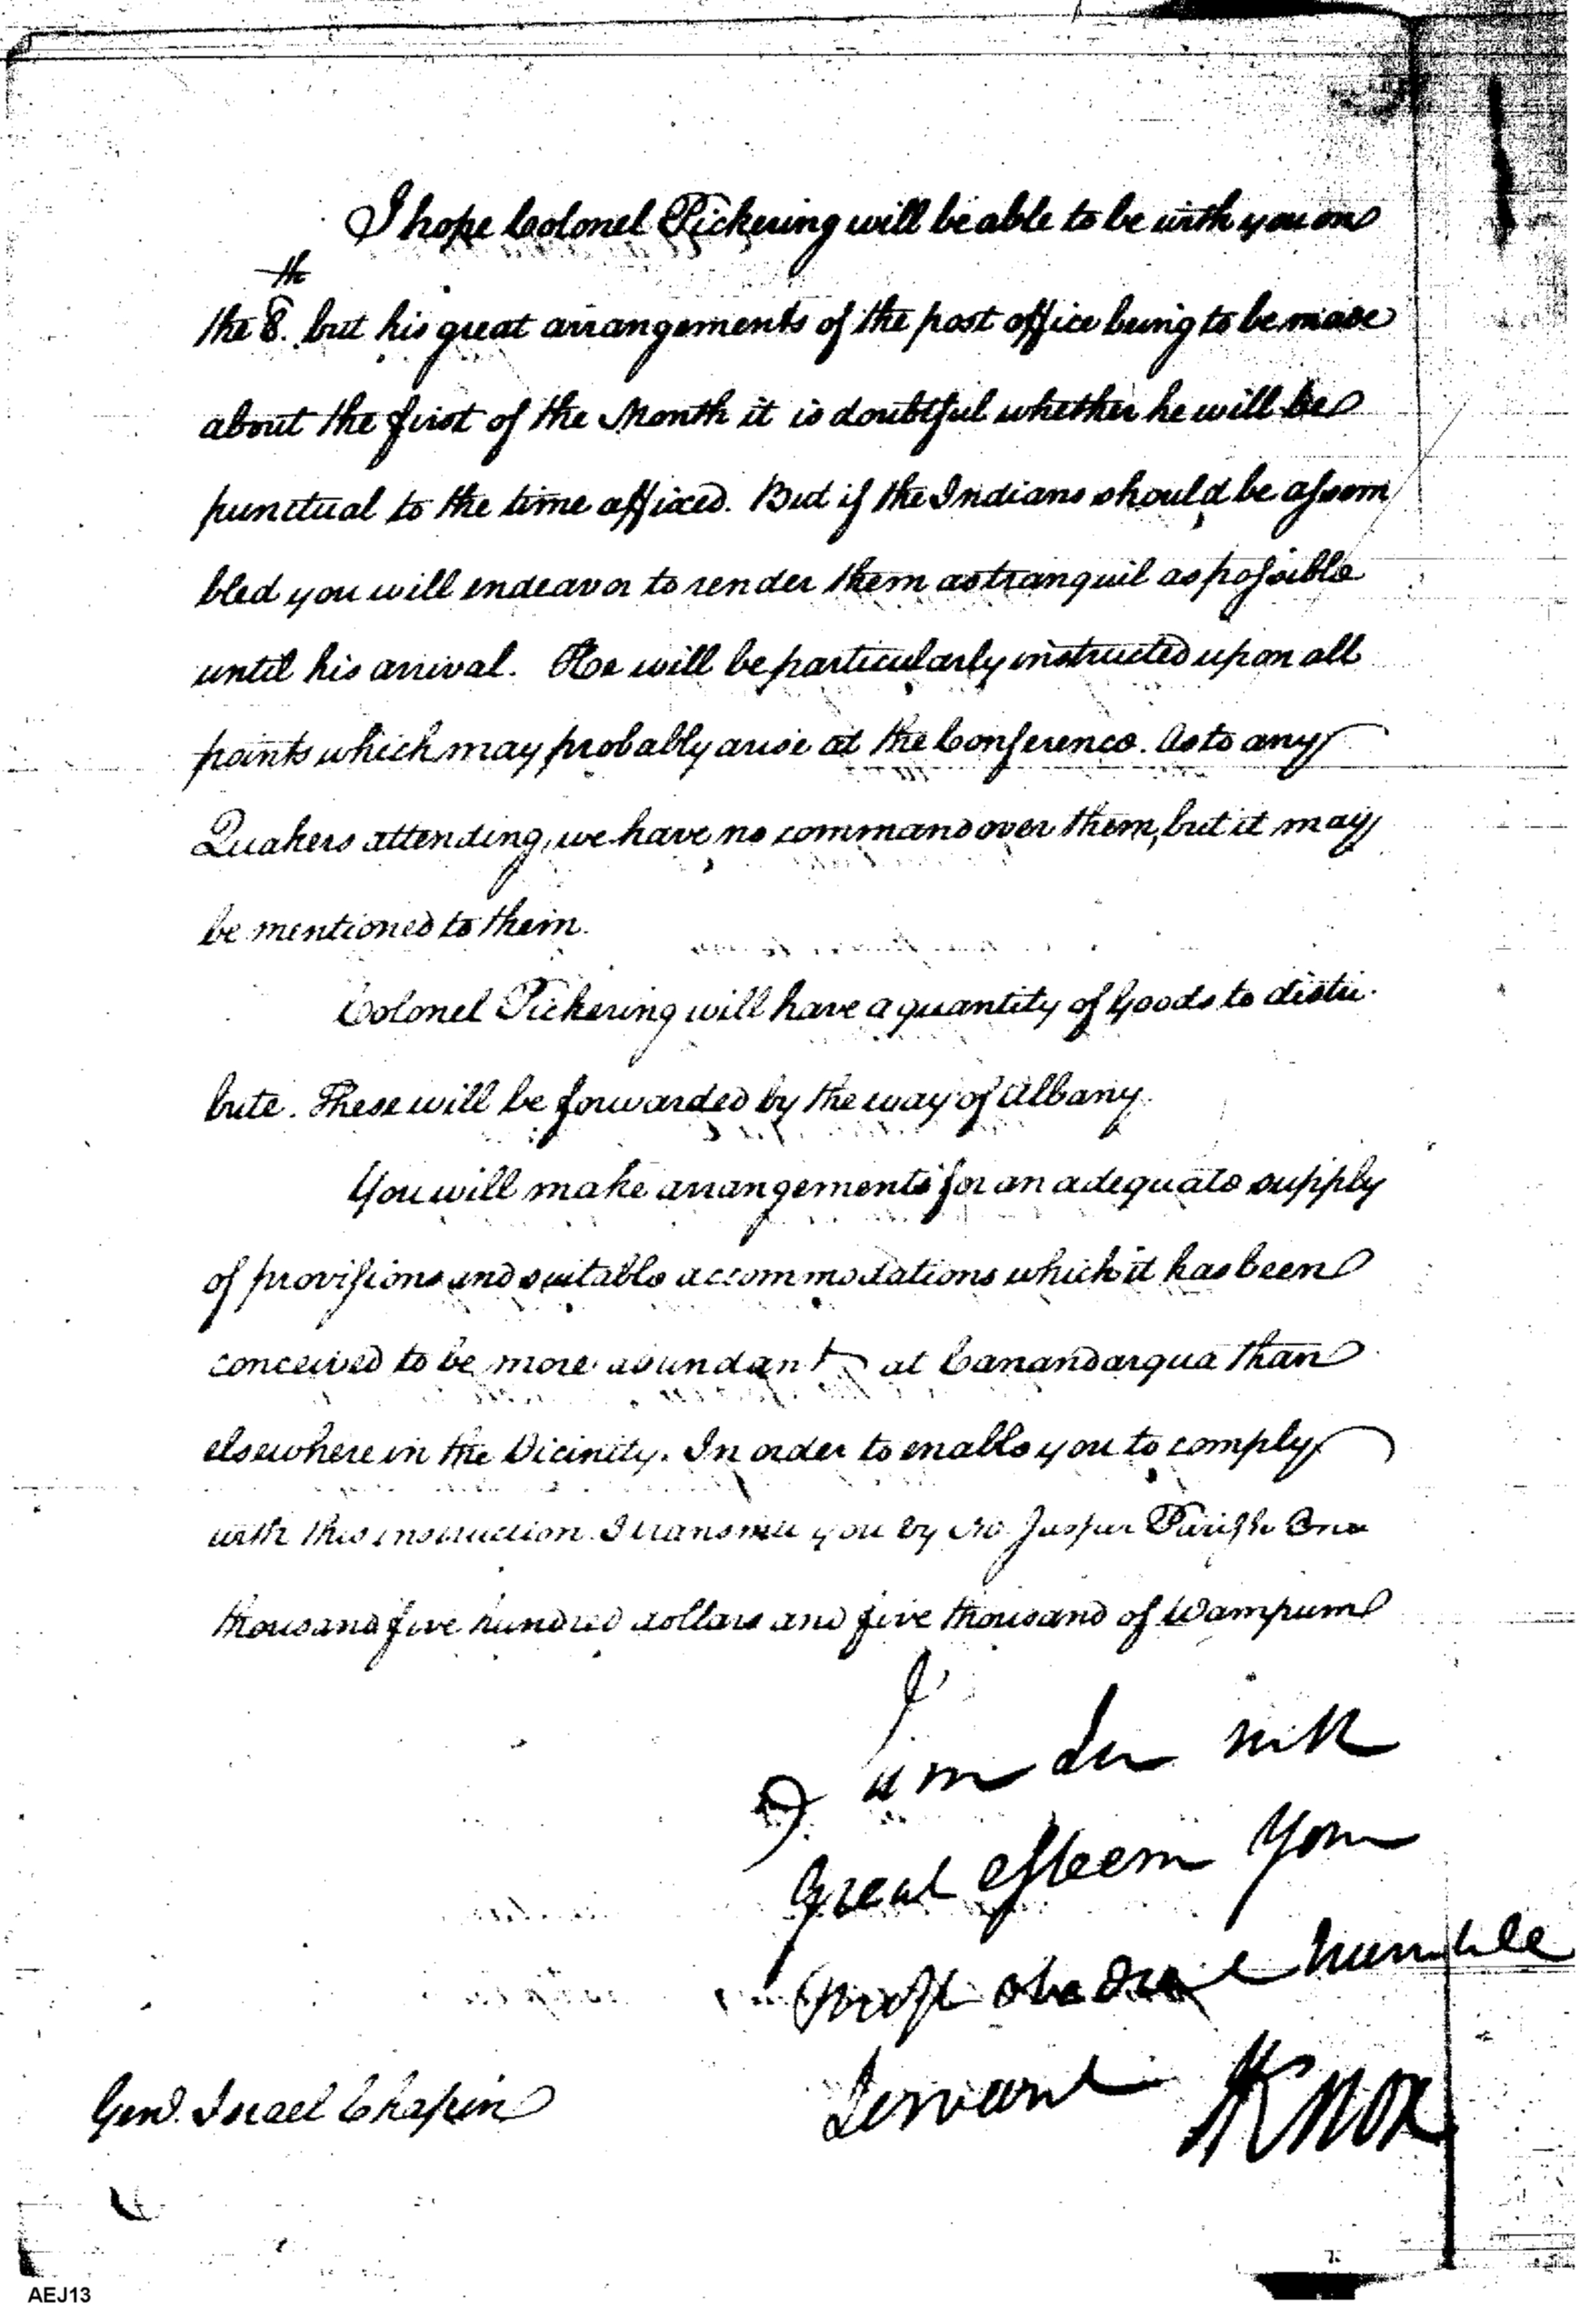 I hope Colonel Pickering will be able to be with you on
the 8th. but his great arrangements of the post office being to be made
about the first of the Month it is doubtful whether he will be
punctual to the time affixed. But if the Indians should be assem
bled you will endeavor to render them as tranquil as possible
until his arrival. He will be particularly instructed upon all
points which may probably arise at the Conference. As to any
Quakers attending, we have no command over them, but it may
be mentioned to them.
Colonel Pickering will have a quantity of Goods to distri-
bute. These will be forwarded by the way of Albany.
You will make arrangements for an adequate supply
of provisions and suitable accommodations which it has been
conceived to be more abundant at Canandarqua than
elsewhere in the Vicinity. In order to enable you to comply
with this instruction I transmit you by Mr. Jasper Parish One
thousand five hundred dollars and five thousand of Wampum
I am Sir with
Great esteem Your
Most obedient humble
Servant HKnox
Genl. Israel Chapin
AEJ13